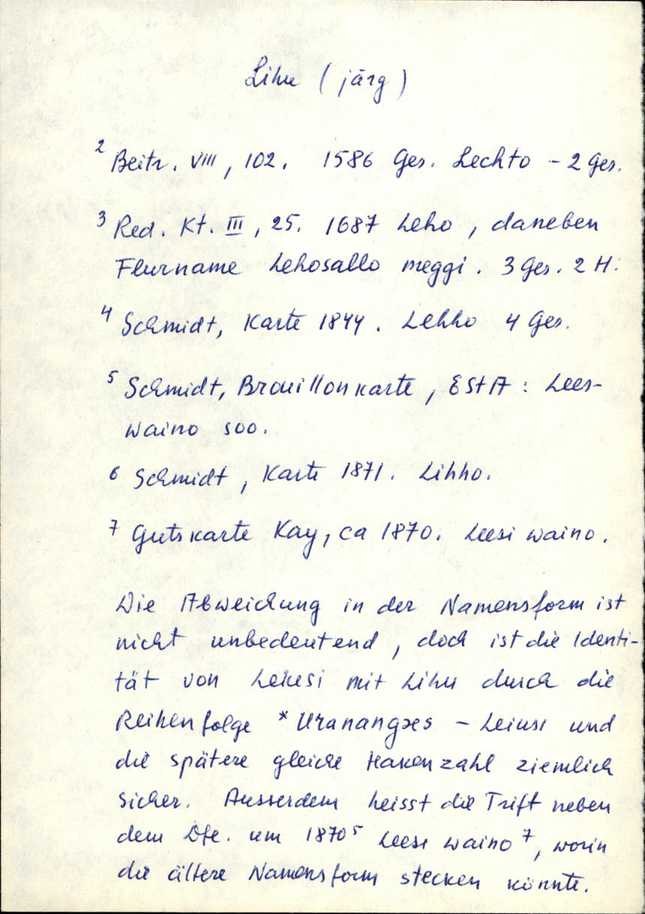 Lihu (järg)
2 Beitr. VIII, 102. 1586 Ges. Lechto - 2 Ges.
3 Red. Kt. III, 25. 1687 Leho, daneben
Flurname Lehosallo meggi. 3 Ges. 2 H.
4 Schmidt, Karte 1844. Lehho 4 Ges.
5 Schmidt, Brouillonkarte, EStA: Lees-
waino soo.
6 Schmidt, Karte 1871. Lihho.
7 Gutskarte Kay, ca 1870. Leesi waino.
Die Abweichung in der Namensform ist
nicht unbedeutend, doch ist die Identi-
tät von Leiusi mit Lihu durch die
Reihenfolge *Uranangæs - Leiusi und
die spätere gleiche Hakenzahl ziemlich
sicher. Ausserdem heisst die Trift neben
dem Dfe. um 1870 5 Leesi waino 7, worin
die ältere Namensform stecken könnte.